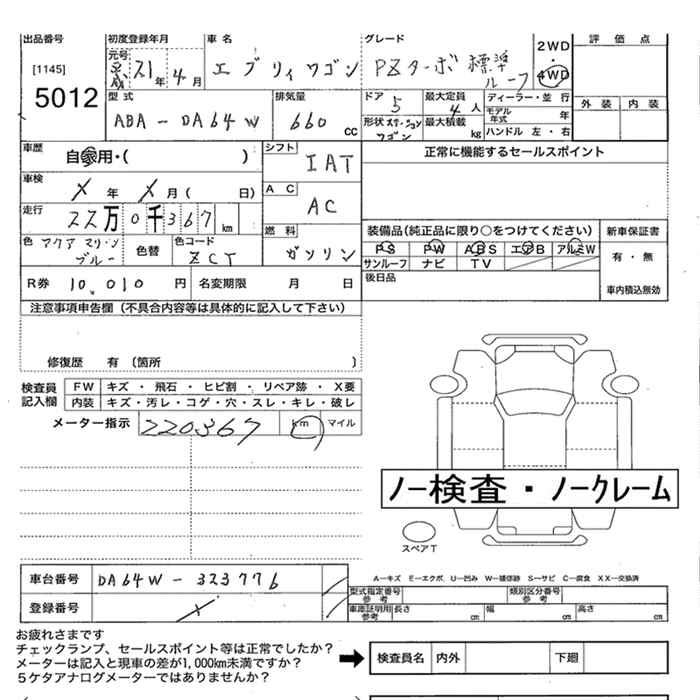 出品番号 初度登録年月 車名 グレード 評価点
[1145] 元号 平成 21年 4月 エブリィワゴン PZターボ標準ルーフ 2WD・4WD
5012 型式 排気量 ドア 最大定員 ディーラー・並行 外装 内装
ABA-DA64W 660cc 5 4人 モデル年式 年
形状 ステーションワゴン 最大積載 kg ハンドル 左・右
車歴 自家用・( ) シフト IAT 正常に機能するセールスポイント
車検 X年 X月( 日) AC AC
走行 22万0千367km
燃料 ガソリン 装備品(純正品に限り○をつけてください) 新車保証書
色 アクアマリンブルー 色替 色コード ZCT PS PW ABS エアB アルミW 有・無
サンルーフ ナビ TV
R券 10,010円 名変期限 月 日 後日品 車内積込無効
注意事項申告欄(不具合内容等は具体的に記入して下さい)
修復歴 有(箇所 )
検査員記入欄 FW キズ・飛石・ヒビ割・リペア跡・X要
内装 キズ・汚レ・コゲ・穴・スレ・キレ・破レ
メーター指示 220367 km マイル
ノー検査・ノークレーム
スペアT
車台番号 DA64W-323776 A-キズ E-エクボ、U-凹み W-補修跡 S-サビ C-腐食 XX-交換済
型式指定番号 参考 類別区分番号 参考
登録番号 X 車庫証明用 参考 長さ cm 幅 cm 高さ cm
お疲れさまです
チェックランプ、セールスポイント等は正常でしたか?
メーターは記入と現車の差が1,000km未満ですか? 検査員名 内外 下廻
5ケタアナログメーターではありませんか?